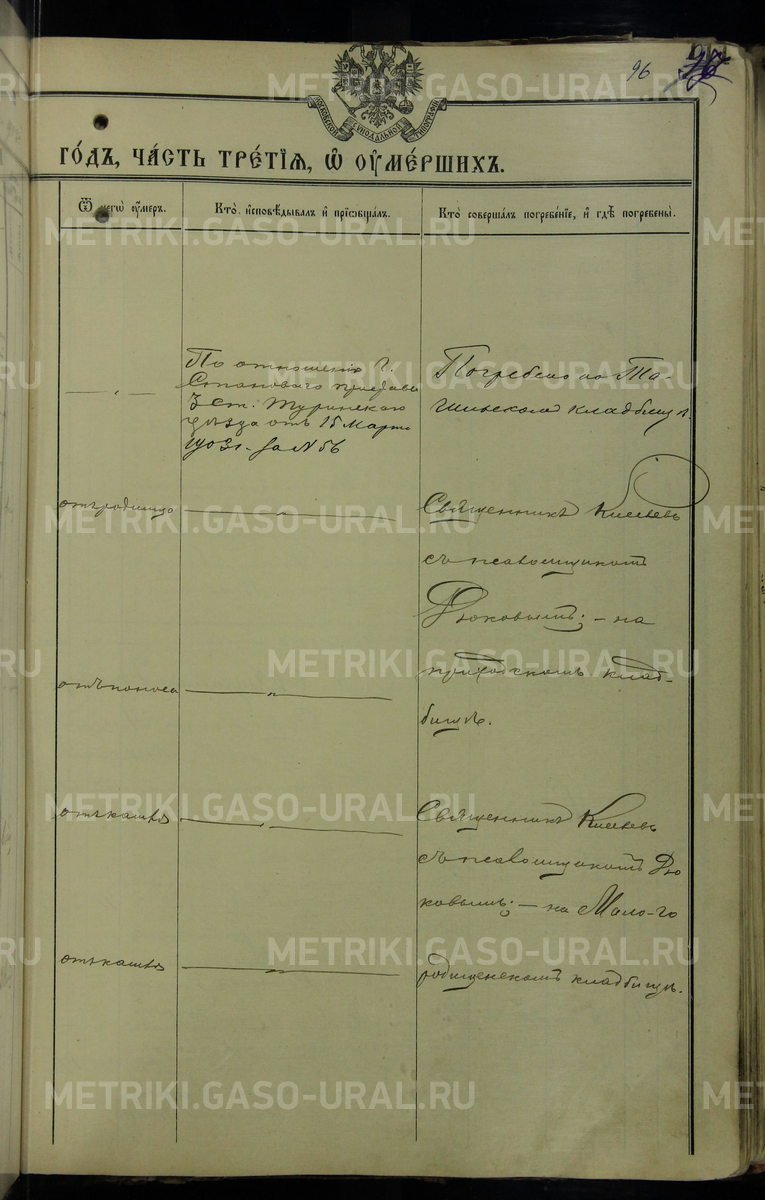 96
МОСКОВСКОЙ СѴНОДАЛЬНОЙ ТИПОГРАФІИ
ГО́ДЪ, ЧА́СТЬ ТРЕ́ТІЯ, Ѡ ОУ҆МЕ́РШИХЪ.
Ѿ чегѡ̀ оу҆́меръ.
Кто̀ и҆сповѣ́дывалъ и҆ пріѡбща́лъ.
Кто̀ соверша́лъ погребе́ніе, и҆ гдѣ̀ погребены̀.
— „ —
По отношенію Г.
Станового пристава
3 ст. Туринскаго
уѣзда отъ 15 Марта
1903 г. за № 56
Погребено на Та-
кладбищѣ.
отъ родимца
— „ —
Священникъ Киселевъ
съ псаломщикомъ
Дюковымъ; – на
приходскомъ клад-
бищѣ.
отъ поноса
— „ —
отъ кашля
— „ —
Священникъ Киселевъ
съ псаломщикомъ Дю
ковымъ; – на Мало-го
родищенскомъ кладбищѣ.
отъ кашля
— „ —
METRIKI.GASO-URAL.RU